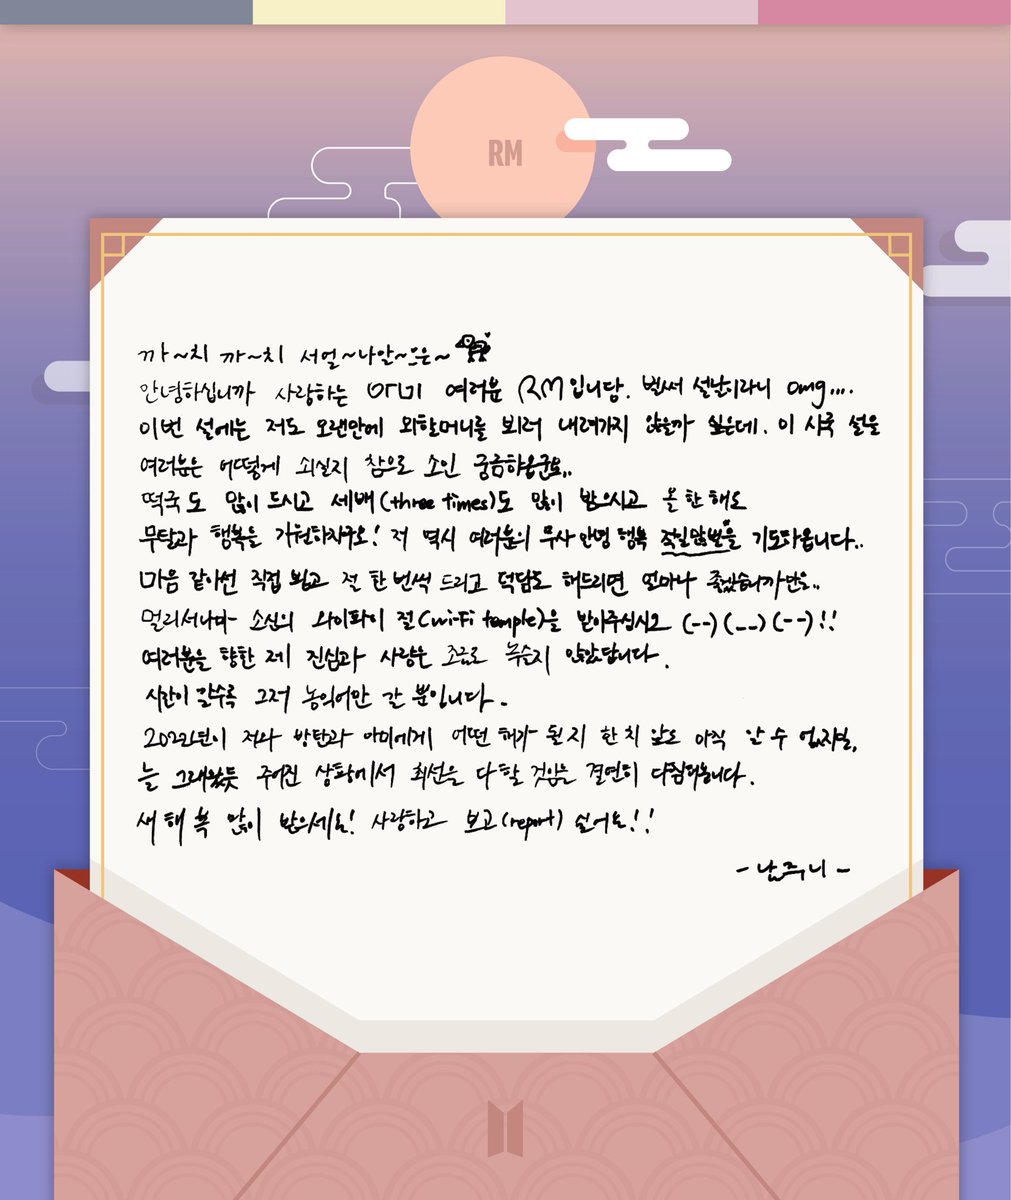 RM
까~치 까~치 서얼~나알~은~
안녕하십니까 사랑하는 아미 여러분 RM입니당. 벌써 설날이라니 omg....
이번 설에는 저도 오랜만에 외할머니를 뵈러 내려가지 않을까 싶은데. 이 시국 설을
여러분은 어떻게 쇠실지 참으로 소인 궁금하옵군요..
떡국도 많이 드시고 세배(three times)도 많이 받으시고 올 한 해도
무탈과 행복을 기원하자구요! 저 역시 여러분의 무사 안녕 행복 을 기도하옵니다..
마음 같아선 직접 뵙고 절 한 번씩 드리고 덕담도 해드리면 얼마나 좋겠습니까만은..
멀리서나마 소신의 와이파이 절(wi-Fi temple)을 받아주십시오 (--)(__)(--)!!
여러분을 향한 제 진심과 사랑은 조금도 녹슬지 않았답니다.
시간이 갈수록 그저 농익어만 갈 뿐입니다.
2022년이 저와 방탄과 아미에게 어떤 해가 될지 한 치 앞도 아직 알 수 없지만,
늘 그래왔듯 주어진 상황에서 최선을 다할 것임은 결연히 다짐하옵니다.
새해 복 많이 받으세요! 사랑하고 보고(report) 싶어요!!
- 남주니 -